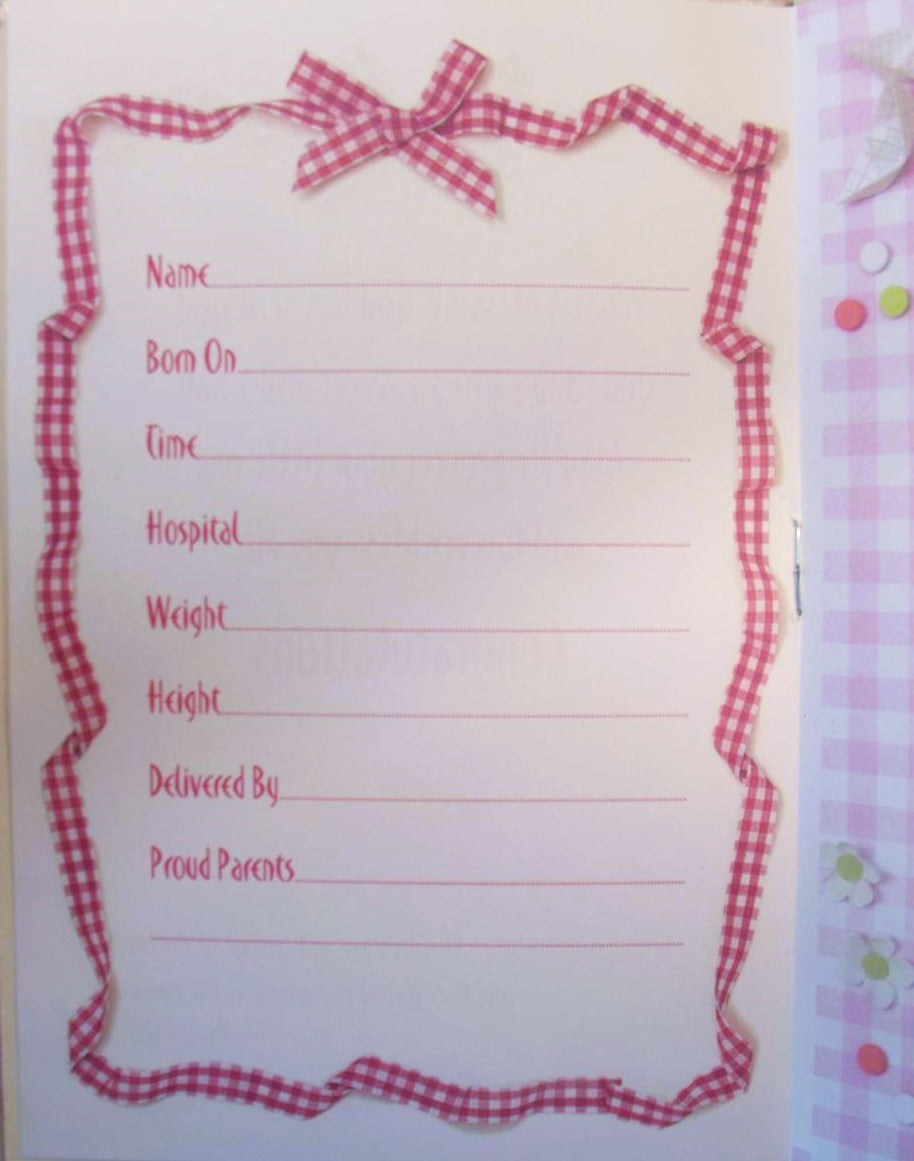 Name
Born On
Time
Hospital
Weight
Height
Delivered By
Proud Parents